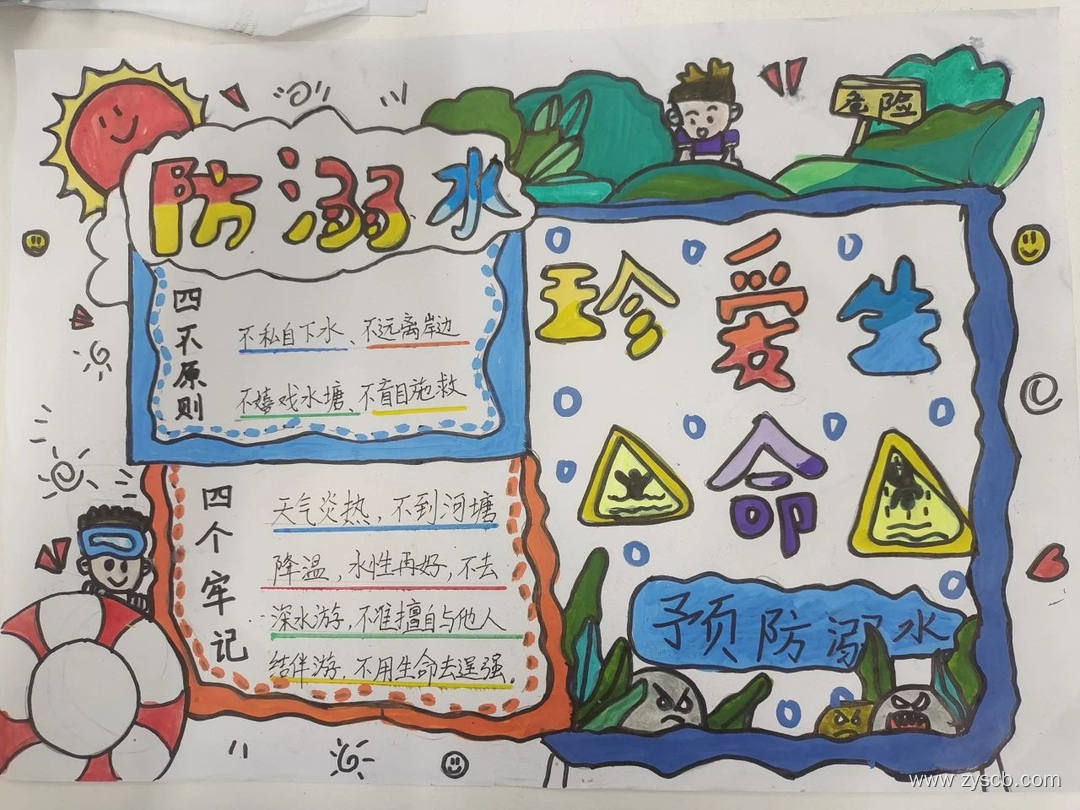 防溺水
危险
四不原则
不私自下水、不远离岸边
不嬉戏水塘、不盲目施救
四个牢记
天气炎热，不到河塘
降温，水性再好，不去
深水游，不准擅自与他人
结伴游，不用生命去逞强。
珍爱生
命
预防溺水
www.zyscb.com